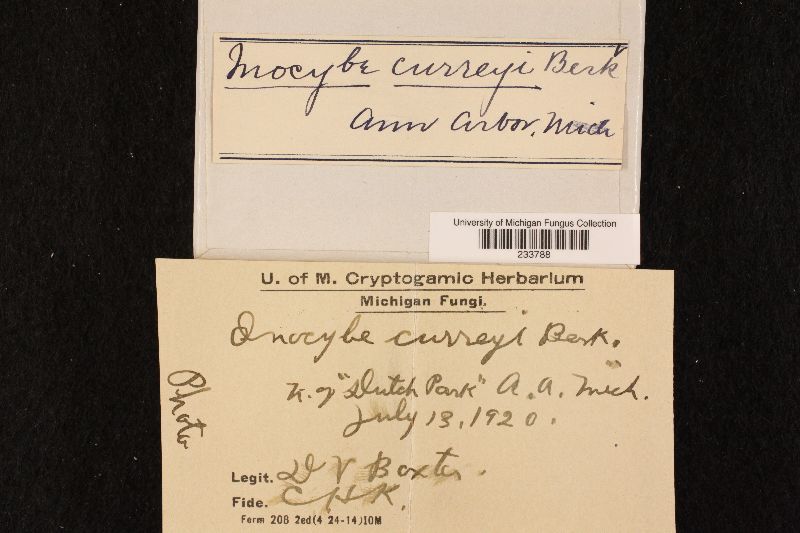 Inocybe curreyi Berk
Ann Arbor, Mich
University of Michigan Fungus Collection
233788
U. of M. Cryptogamic Herbarium
Michigan Fungi.
Inocybe curreyi Berk.
N. of "Dutch Park" A. A. Mich.
July 13, 1920.
Photo
Legit. D V Baxter.
Fide. C H K.
Form 208 2ed(4 24-14)10M